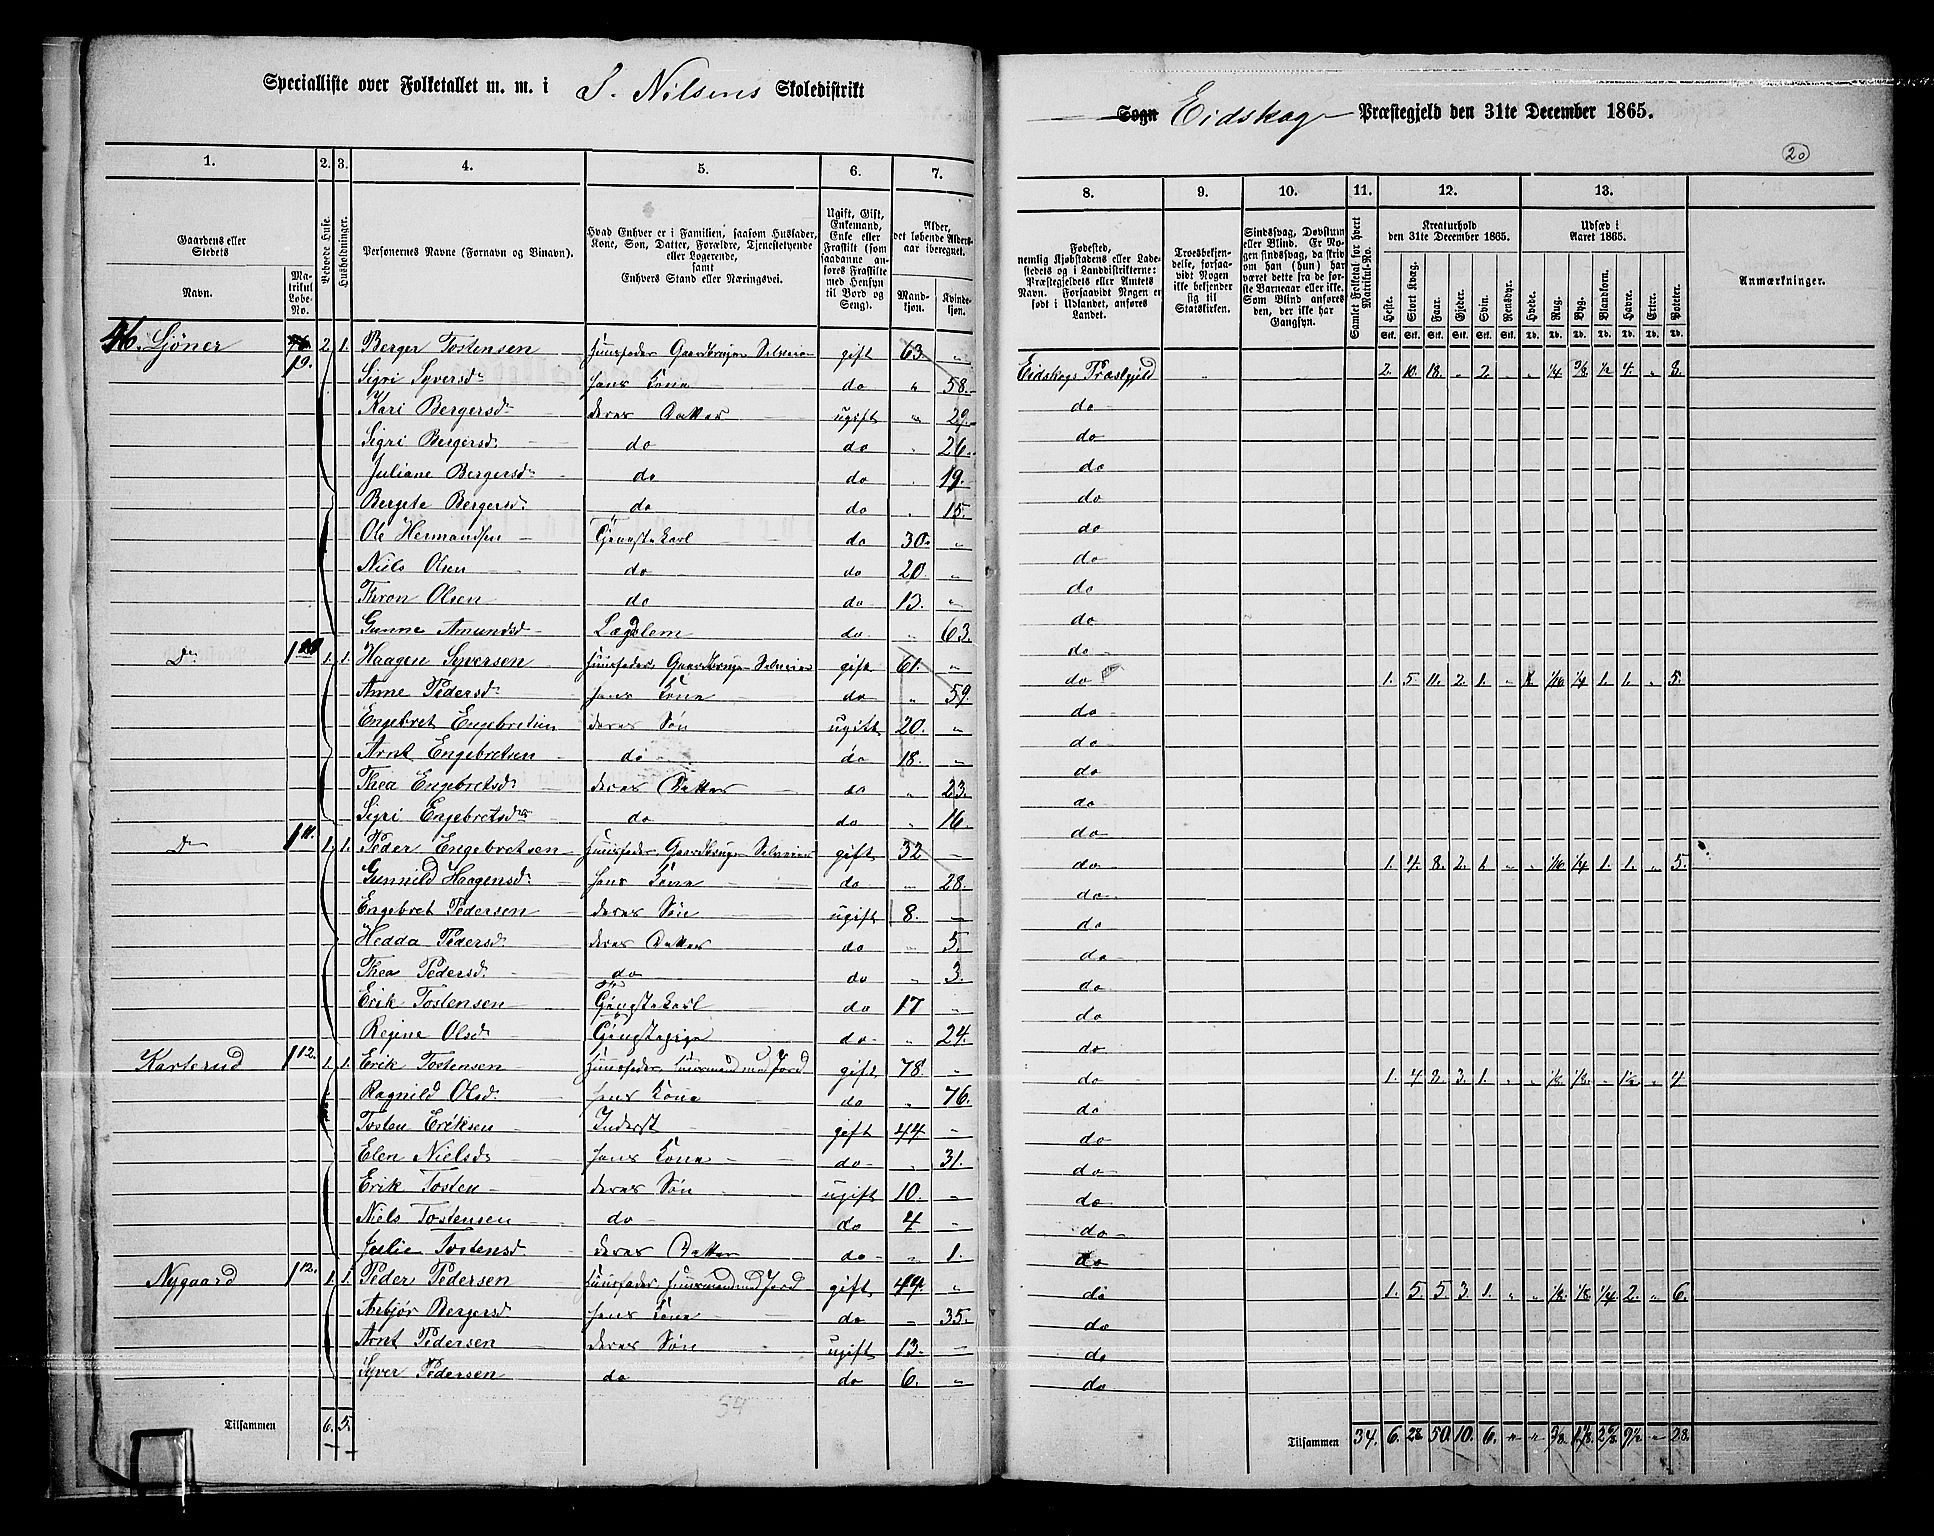 Specialliste over Folketallet m. m. i S. Nilsens Skoledistrikt
Sogn Eidskog Præstegjeld den 31te December 1865.
20
1. 2. 3. 4. 5. 6. 7.
8. 9. 10. 11. 12. 13.
Gaardens eller Stedets Navn.
Matrikul Løbe-No.
Beboede Huse.
Husholdninger.
Personernes Navne (Fornavn og Binavn).
Hvad Enhver er i Familien, saasom Husfader, Kone, Søn, Datter, Forældre, Tjenestetyende eller Logerende, samt Enhvers Stand eller Næringsvei.
Ugift, Gift, Enkemand, Enke eller Fraskilt (som saadanne anføres Fraskilte med Hensyn til Bord og Seng).
Alder, det løbende Aldersaar iberegnet.
Mandkjøn. Kvindekjøn.
Fødested, nemlig Kjøbstadens eller Ladestedets og i Landdistrikterne: Præstegjeldets eller Amtets Navn. Forsaavidt Nogen er født i Udlandet, anføres Landet.
Troesbekjendelse, forsaavidt Nogen ikke bekjender sig til Statskirken.
Sindssvag, Døvstum eller Blind. Er Nogen sindssvag, da skriv om han (hun) har været dette fra de første Barneaar eller ikke. Som Blind anføres den, der ikke har Gangsyn.
Samlet Folketal for hvert Matrikul-No.
Kreaturhold den 31te December 1865.
Heste. Stort Kvæg. Faar. Gjeder. Svin. Rensdyr.
Udsæd i Aaret 1865.
Hvede. Rug. Byg. Blandkorn. Havre. Erter. Poteter.
Anmærkninger.
46. Sjöner 19. 2. 1. Berger Tostensen Huusfader, Gaardbruger Selveier gift 63. „ Eidskogs Præstgjeld 2. 10. 18. „ 2. „ „ 1/4 3/8 1/2 4. „ 8.
Sigri Syversd. hans Kone do „ 58. do
Kari Bergersd. deres Datter ugift „ 29. do
Sigri Bergersd. do do „ 26. do
Juliane Bergersd. do do „ 19. do
Bergete Bergersd. do do „ 15. do
Ole Hermandsen Tjenestekarl do 30. „ do
Niels Olsen do do 20. „ do
Thron Olsen do do 13. „ do
Gunne Amundsd. Lægdslem do „ 63. do
Do 1. 1. Haagen Syversen Huusfader, Gaardbruger Selveier gift 61. „ do 1. 5. 11. 2. 1. „ 1/16 1/4 1. 1. „ 5.
Anne Pedersd. hans Kone do „ 59. do
Engebret Engebretsen deres Søn ugift 20. „ do
Arnt Engebretsen do do 18. „ do
Thea Engebretsd. deres Datter do „ 23. do
Sigri Engebretsd. do do „ 16. do
Do 111. 1. 1. Peder Engebretsen Huusfader, Gaardbruger Selveier gift 32 — do 1. 4. 8. 2. 1. „ „ 1/16 1/4 1. 1. „ 5.
Gunnild Haagensd. hans Kone do „ 28. do
Engebret Pedersen deres Søn ugift 8. — do
Hedda Pedersd. deres Datter do „ 5. do
Thea Pedersd. do do „ 3. do
Erik Tostensen Tjenestekarl do 17 „ do
Regine Olsd. Tjenestepige do „ 24. do
Karterud 112. 1. 1. Erik Tostensen Huusfader, Huusmand med Jord gift 78. — do 1. 4 2. 3. 1. „ „ 1/8 1/8. „ 1 1/2 „ 4.
Ragnild Olsd. hans Kone do „ 76. do
Tosten Eriksen Inderst gift 44 — do
Elen Nielsd. hans Kone do „ 31. do
Erik Tosten deres Søn ugift 10. — do
Niels Tostensen do do 4 — do
Julie Tostensd. deres Datter do „ 1. do
Nygaard 112. 1. 1. Peder Pedersen Huusfader, Huusmand med Jord gift 44. „ do 1. 5. 5. 3. 1. „ „ 1/8. 1/8 1/4 2. „ 6.
Anbjør Bergersd. hans Kone do — 35. do
Arnt Pedersen deres Søn ugift 13. — do
Syver Pedersen do do 6. „ do
34
Tilsammen 6. 5.
Tilsammen 34. 6. 28 50. 10. 6. „ „ 9 1/2 „ 28.